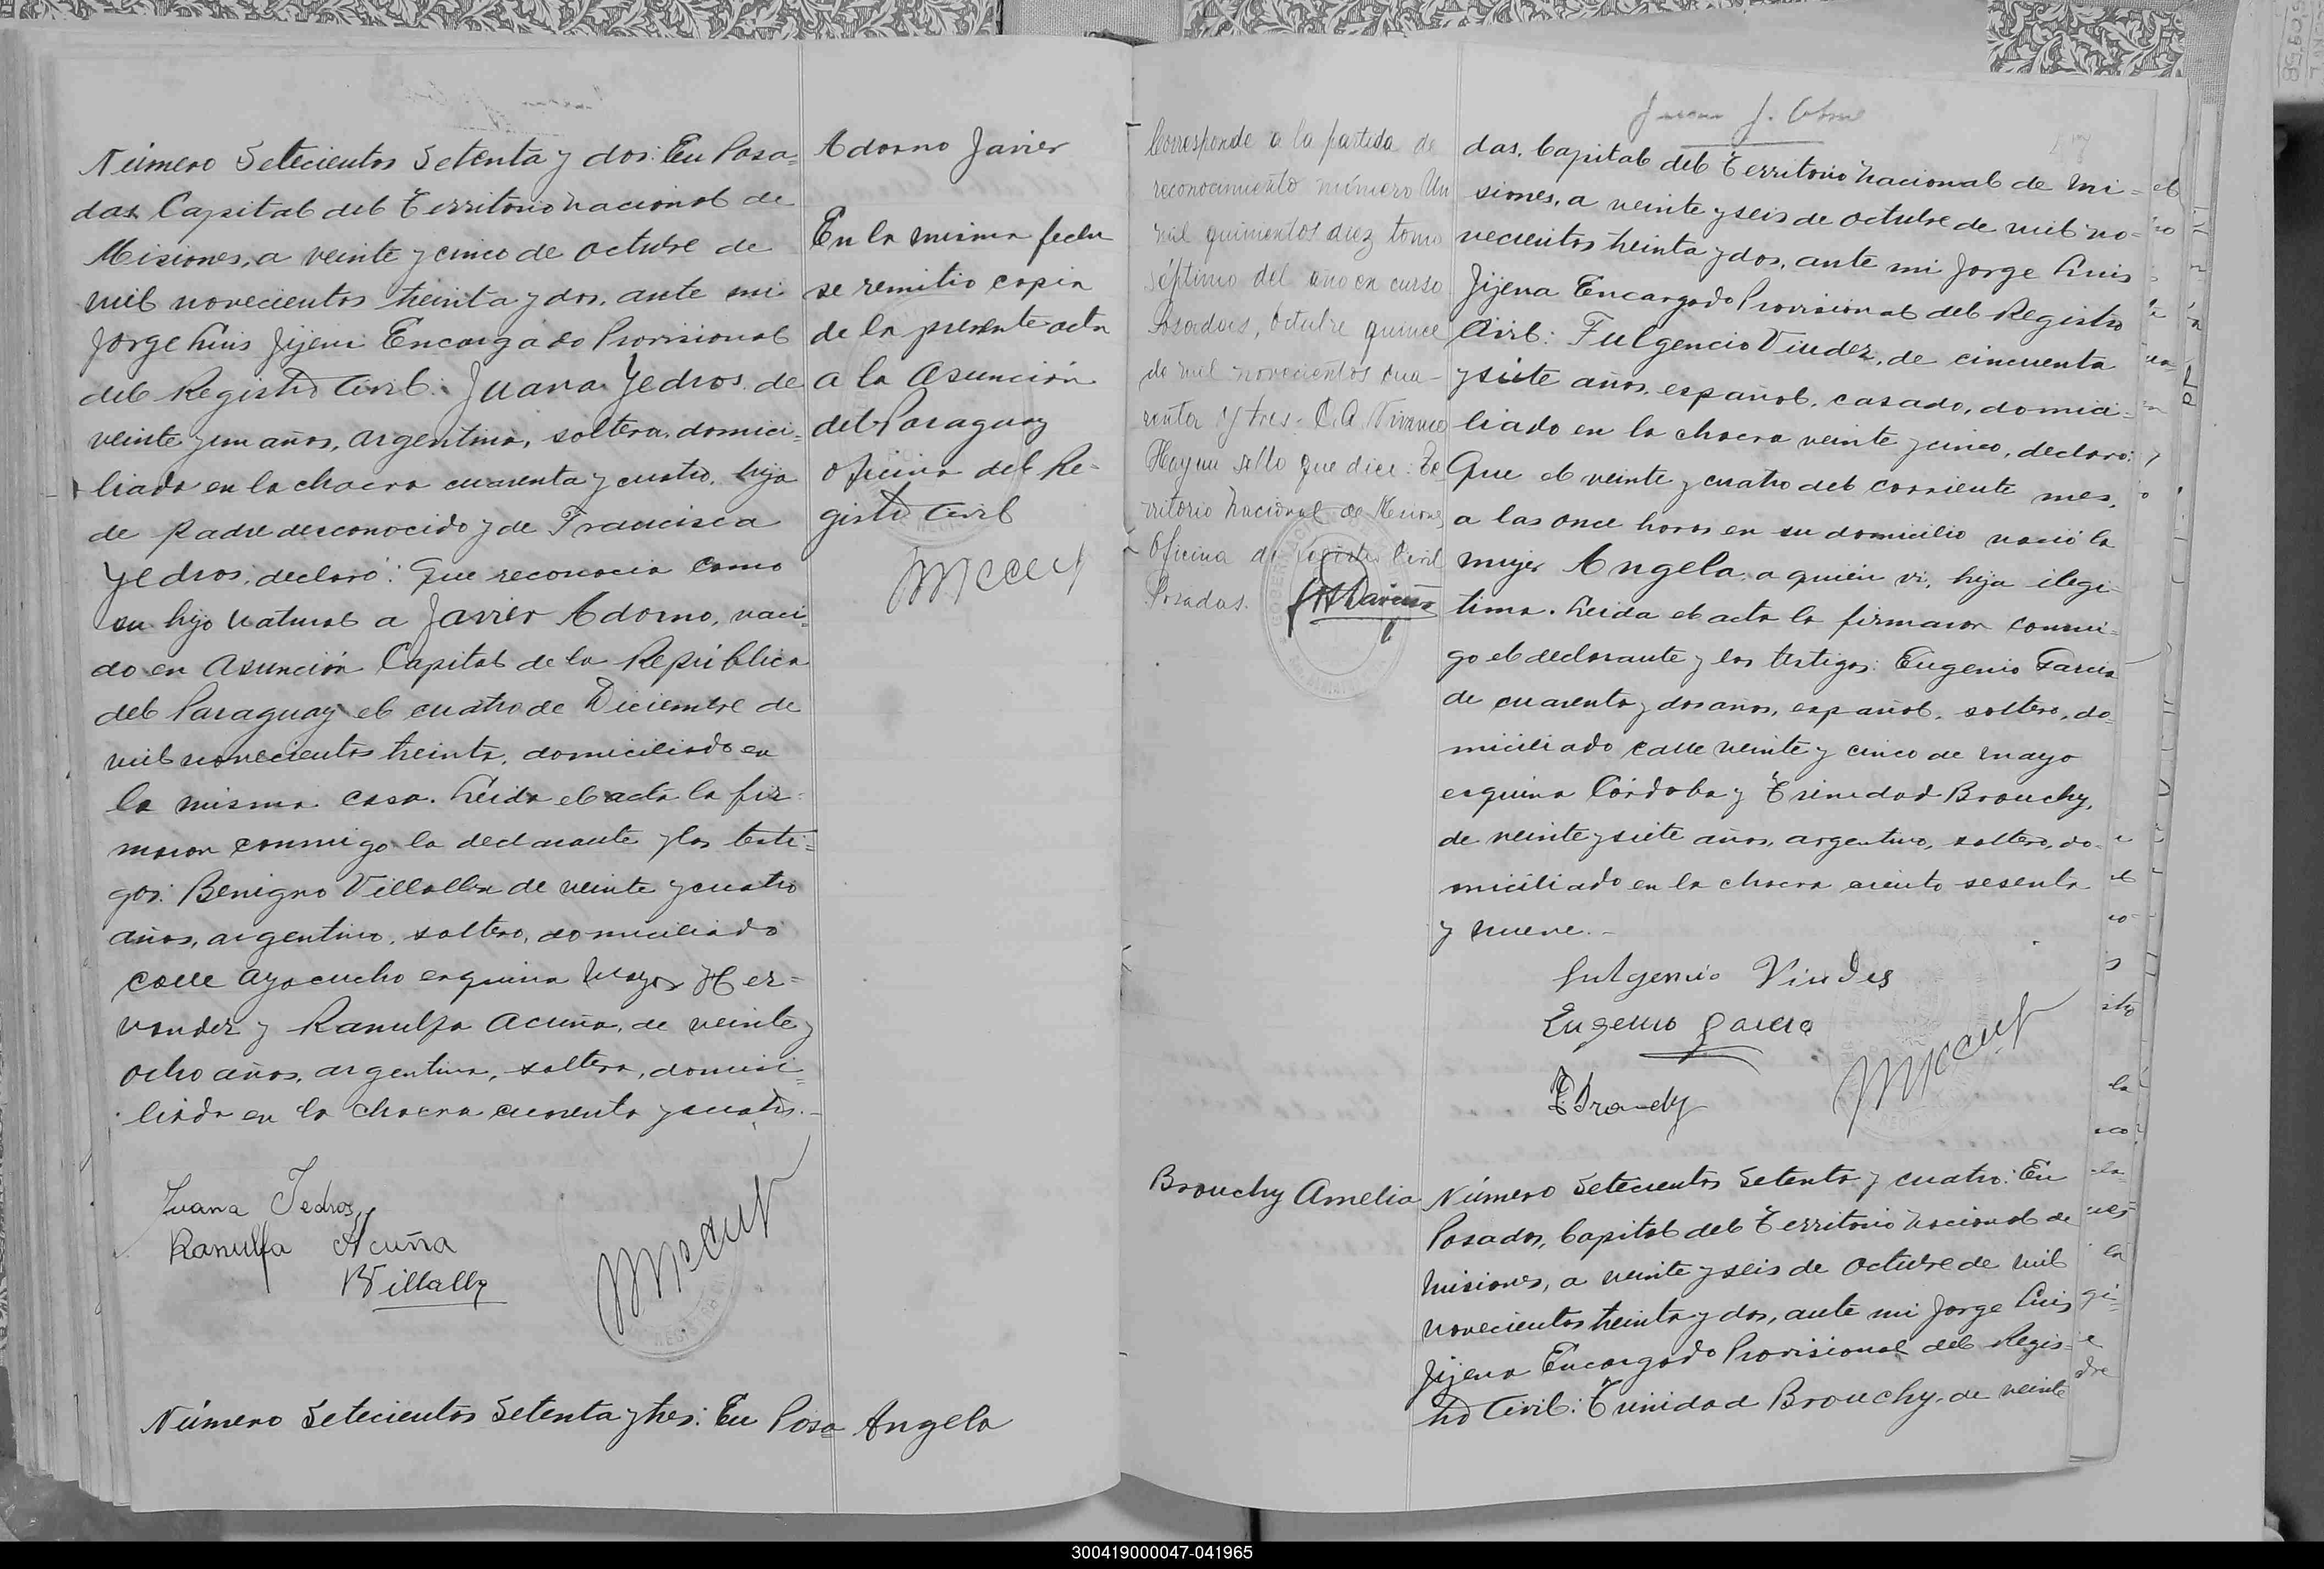 Número Setecientos Setenta y dos: En Posa=
das Capital del Territorio Nacional de
Misiones, a veinte y cinco de octubre de
mil novecientos treinta y dos, ante mi
Jorge Luis Jijena Encargado Provisional
del Registro Civil: Juana Yedros, de
veinte y un años, argentina, soltera, domici=
liada en la chacra cuarenta y cuatro, hija
de padre desconocido y de Francisca
Yedros, declaró: Que reconocia como
su hijo natural a Javier Adorno, naci=
do en Asunción Capital de la República
del Paraguay el cuatro de Diciembre de
mil novecientos treinta, domiciliado en
la misma casa. Leida el acta la fir=
maron conmigo la declarante y los testi=
gos: Benigno Villalba de veinte y cuatro
años, argentino, soltero, domiciliado
calle Ayacucho esquina Mayor Her=
nandez y Ranulfa Acuña, de veinte y
ocho años, argentina, soltera, domici=
liada en la chacra cuarenta y cuatro.-
Juana Yedros
Ranulfa Acuña
BVillalba
Número Setecientos Setenta y tres: En Posa=
Adorno Javier
En la misma fecha
se remitio copia
de la presente acta
a la Asunción
del Paraguay
Oficina del Re=
gistro Civil
Angela
Corresponde a la partida de
reconocimiento número Un
mil quinientos diez tomo
séptimo del año en curso
Posadas, Octubre quince
de mil novecientos cua-
renta y tres.
Hay un sello que dice: Te
rritorio Nacional de Misiones
Oficina de Registro Civil
Posadas.
das, Capital del Territorio Nacional de Mi=
siones, a veinte y seis de octubre de mil no=
vecientos treinta y dos, ante mi Jorge Luis
Jijena Encargado Provisional del Registro
Civil: Fulgencio Viudez, de cincuenta
y siete años, español, casado, domici=
liado en la chacra veinte y cinco, declaró:
Que el veinte y cuatro del corriente mes,
a las once horas en su domicilio nació la
mujer Angela, a quien vi, hija ilegi=
tima. Leida el acta la firmaron conmi=
go el declarante y los testigos: Eugenio Garcia
de cuarenta y dos años, español, soltero, do=
miciliado calle veinte y cinco de Mayo
esquina Córdoba y Trinidad Brouchy,
de veinte y siete años, argentino, soltero, do=
miciliado en la chacra ciento sesenta
y nueve.-
Fulgencio Viudes
Eugenio Garcia
Brouchy Amelia
Número Setecientos Setenta y cuatro: En
Posadas, Capital del Territorio Nacional de
Misiones, a veinte y seis de Octubre de mil
novecientos treinta y dos, ante mi Jorge Luis
Jijena Encargado Provisional del Regis=
tro Civil: Trinidad Brouchy, de veinte
300419000047-041965